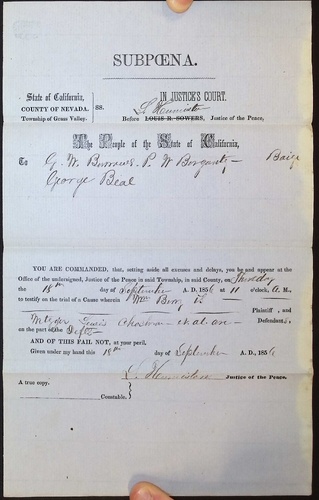 SUBPŒNA.
State of California,
COUNTY OF NEVADA.
Township of Grass Valley.
SS.
IN JUSTICE'S COURT.
Before LOUIS R. SOWERS, Justice of the Peace,
The People of the State of California,
To G. W. Burrows P. W.
George Beal
YOU ARE COMMANDED, that, setting aside all excuses and delays, you be and appear at the
Office of the undersigned, Justice of the Peace in said Township, in said County, on Thursday
the 18th day of September A. D. 1856 at 11 o'clock, A. M.,
to testify on the trial of a Cause wherein Wm Berry
Plaintiff, and
Lewis et al are Defendant,
on the part of the Defts
AND OF THIS FAIL NOT, at your peril.
Given under my hand this 18th day of September A. D., 1856
Justice of the Peace.
A true copy.
Constable.